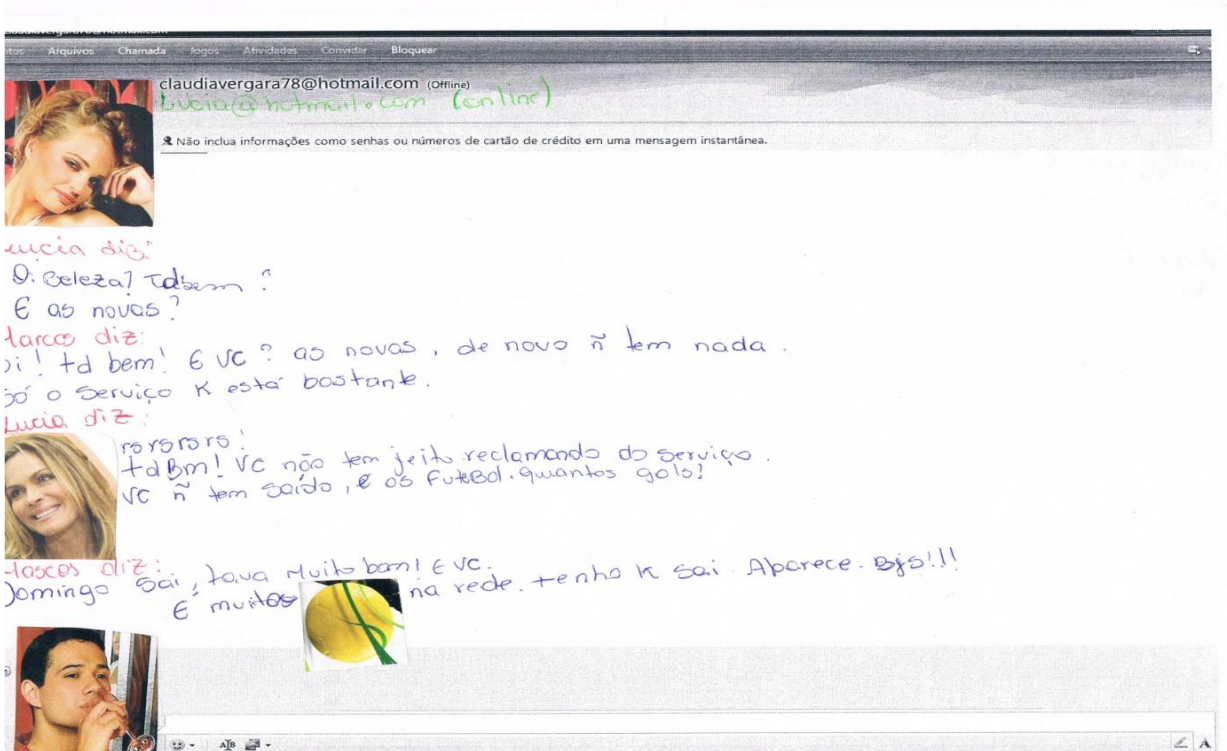 Arquivos Chamada Jogos Atividades Convidar Bloquear
claudiavergara78@hotmail.com (Offline)
Lucia@hotmail.com (online)
Não inclua informações como senhas ou números de cartão de crédito em uma mensagem instantânea.
Lucia diz:
Oi Beleza? Tdbem?
E as novas?
Marcos diz:
oi! td bem! E VC? as novas, de novo ñ tem nada.
só o serviço K está bastante.
Lucia diz:
rsrsrsrs!
tdBm! VC não tem jeito reclamando do serviço.
VC ñ tem saído, e os FuteBol. Quantos gols?
Marcos diz:
Domingo sai, tava Muito bom! E VC.
E muitos na rede. tenho K sai. Aparece. Bjs!!!